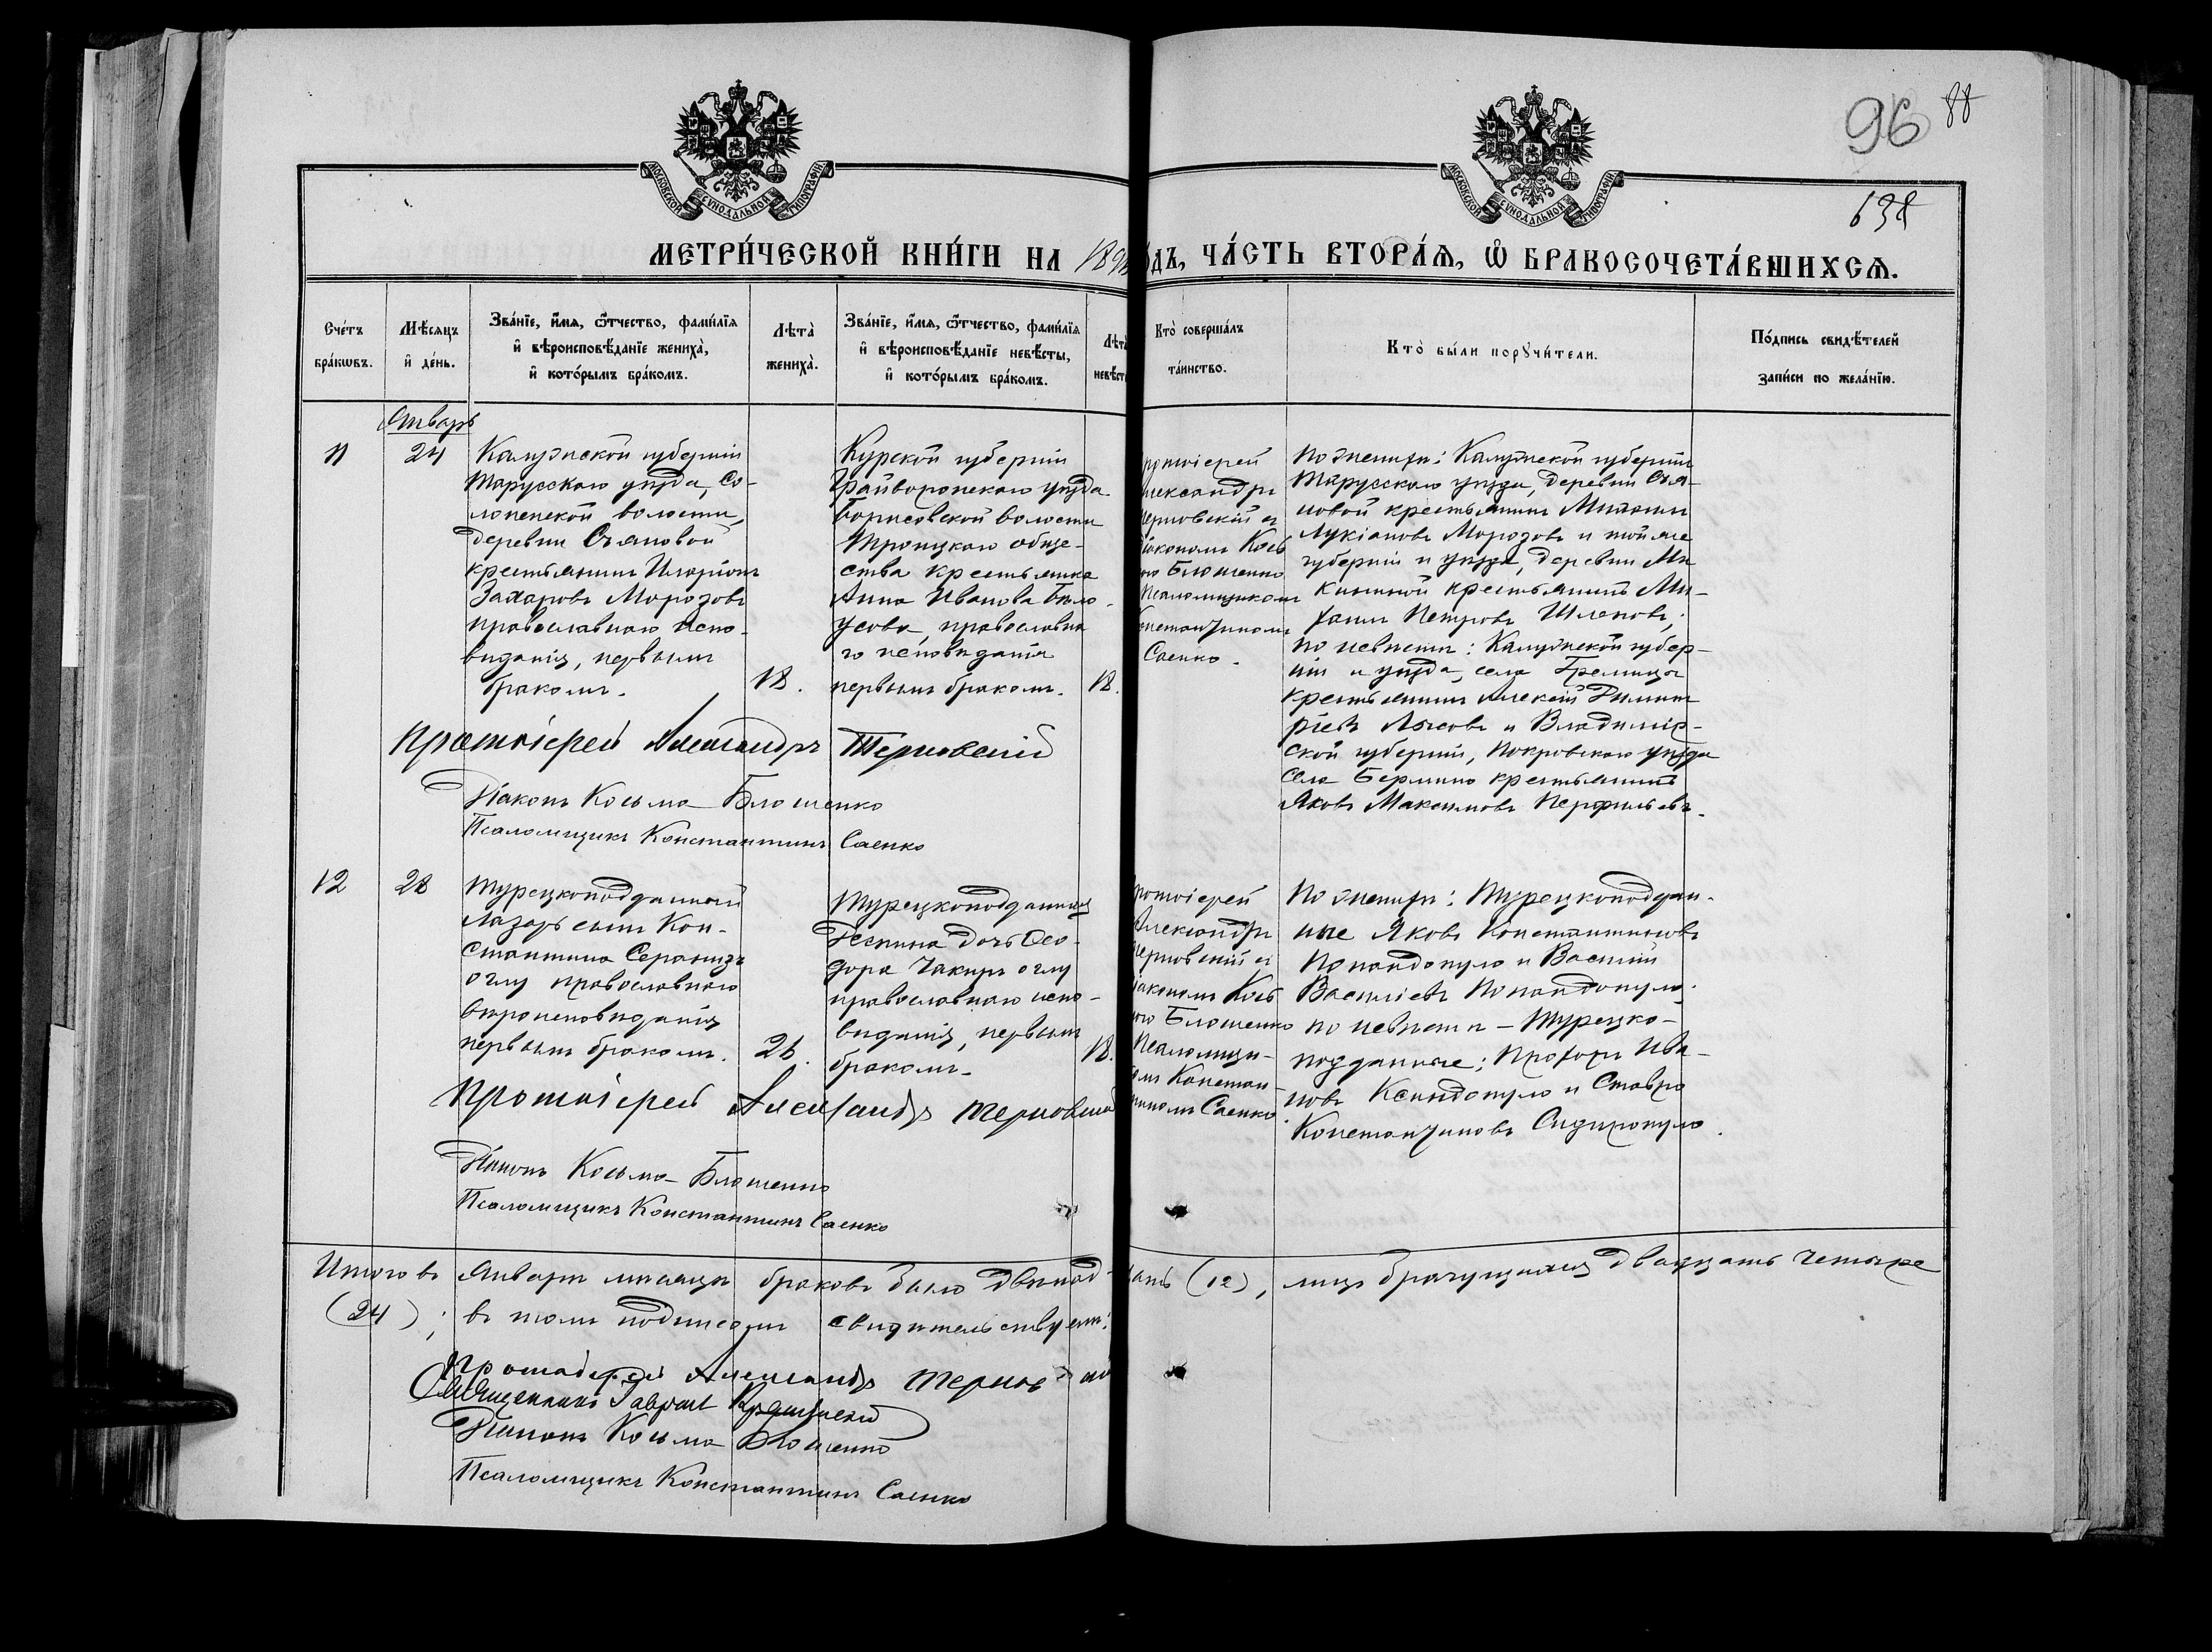 96 88
638
МОСКОВСКОЙ СѴНОДАЛЬНОЙ ТИПОГРАФІИ
МОСКОВСКОЙ СѴНОДАЛЬНОЙ ТИПОГРАФІИ
МЕТРИ́ЧЕСКОЙ КНИ́ГИ НА 189 ОДЪ, ЧА́СТЬ ВТОРА́Ѧ, Ѽ БРАКОСОЧЕТА́ВШИХСѦ.
Сче́тъ
бра́кѡвъ.
Мѣ́сяцъ
и҆ де́нь.
Зва́нїе, и҆́мѧ, ѻ҆́тчество, фами́лїѧ
и҆ вѣроисповѣ́данїе жениха̀,
и҆ кото́рымъ бра́комъ.
Лѣта̀
жениха̀.
Зва́нїе, и҆́мѧ, ѻ҆́тчество, фами́лїѧ
и҆ вѣроисповѣ́данїе невѣ́сты,
и҆ кото́рымъ бра́комъ.
Лѣта
невѣст
Кто̀ соверша́лъ
та́инство.
Кто̀ бы́ли порꙋчи́тели.
По́дпись свидѣ́телей
за́писи по жела́нїю.
Январь
11
24
Калужской губерніи
Тарусскаго уѣзда, Со-
лопенской волости,
деревни Сѧновой
крестьянинъ Иларіонъ
Захаровъ Морозовъ
православнаго испо-
вѣданія, первымъ
бракомъ.
18.
Курской губерніи
Грайворонскаго уѣзда
Борисовской волости
Троицкаго обще-
ства крестьянка
Анна Иванова Бѣло-
усова, православна
го исповѣданія
первымъ бракомъ.
18.
ротоіерей
лександръ
ерновскій съ
іакономъ Кось
ою Блошенко
Псаломщикомъ
онстантиномъ
Саенко.
По женихѣ: Калужской губерніи
Тарусскаго уѣзда, деревни Сѧ-
новой крестьянинъ
Лукіановъ Морозовъ и той же
губерніи и уѣзда, деревни Ми
киной крестьянинъ Ми-
хаилъ Петровъ Шленовъ;
по невѣстѣ: Калужской губер-
ніи и уѣзда, села
крестьянинъ Алексѣй Димит
ріевъ Лысовъ и Владимір-
ской губерніи, Покровскаго уѣзда
села крестьянинъ
Яковъ Максимовъ Перфильевъ.
Протоіерей Александръ Терновскій
Діаконъ Косьма Блошенко
Псаломщикъ Константинъ Саенко
12
28
Турецкоподданный
Лазарь сынъ Кон-
стантина
оглу православнаго
вѣроисповѣданія
первымъ бракомъ.
26.
Турецкоподданная
Деспина дочь Ѳео-
дора Чакиръ оглу
православнаго испо-
вѣданія, первымъ
бракомъ.
18.
ротоіерей
Александръ
ерновскій съ
іакономъ Кось
ою Блошенко
Псаломщи-
омъ Констан
тиномъ Саенко.
По женихѣ: Турецкоподдан-
ные Яковъ Константиновъ
Попандопуло и Василій
Василіевъ Попандопуло;
по невѣстѣ - Турецко-
подданные: Прохоръ Ива-
новъ Ксандопуло и Ставро
Константиновъ Сидиропуло.
Протоіерей Александръ Терновскій
Діаконъ Косьма Блошенко
Псаломщикъ Константинъ Саенко
Итого въ Январѣ мѣсяцѣ браковъ было двѣнад- цать (12), лицъ брачущихся двадцать четыре
(24); въ томъ подписомъ свидѣтельствуемъ:
Протоіерей Александръ Терновскій
Священникъ Гавріилъ
Діаконъ Косьма Блошенко
Псаломщикъ Константинъ Саенко